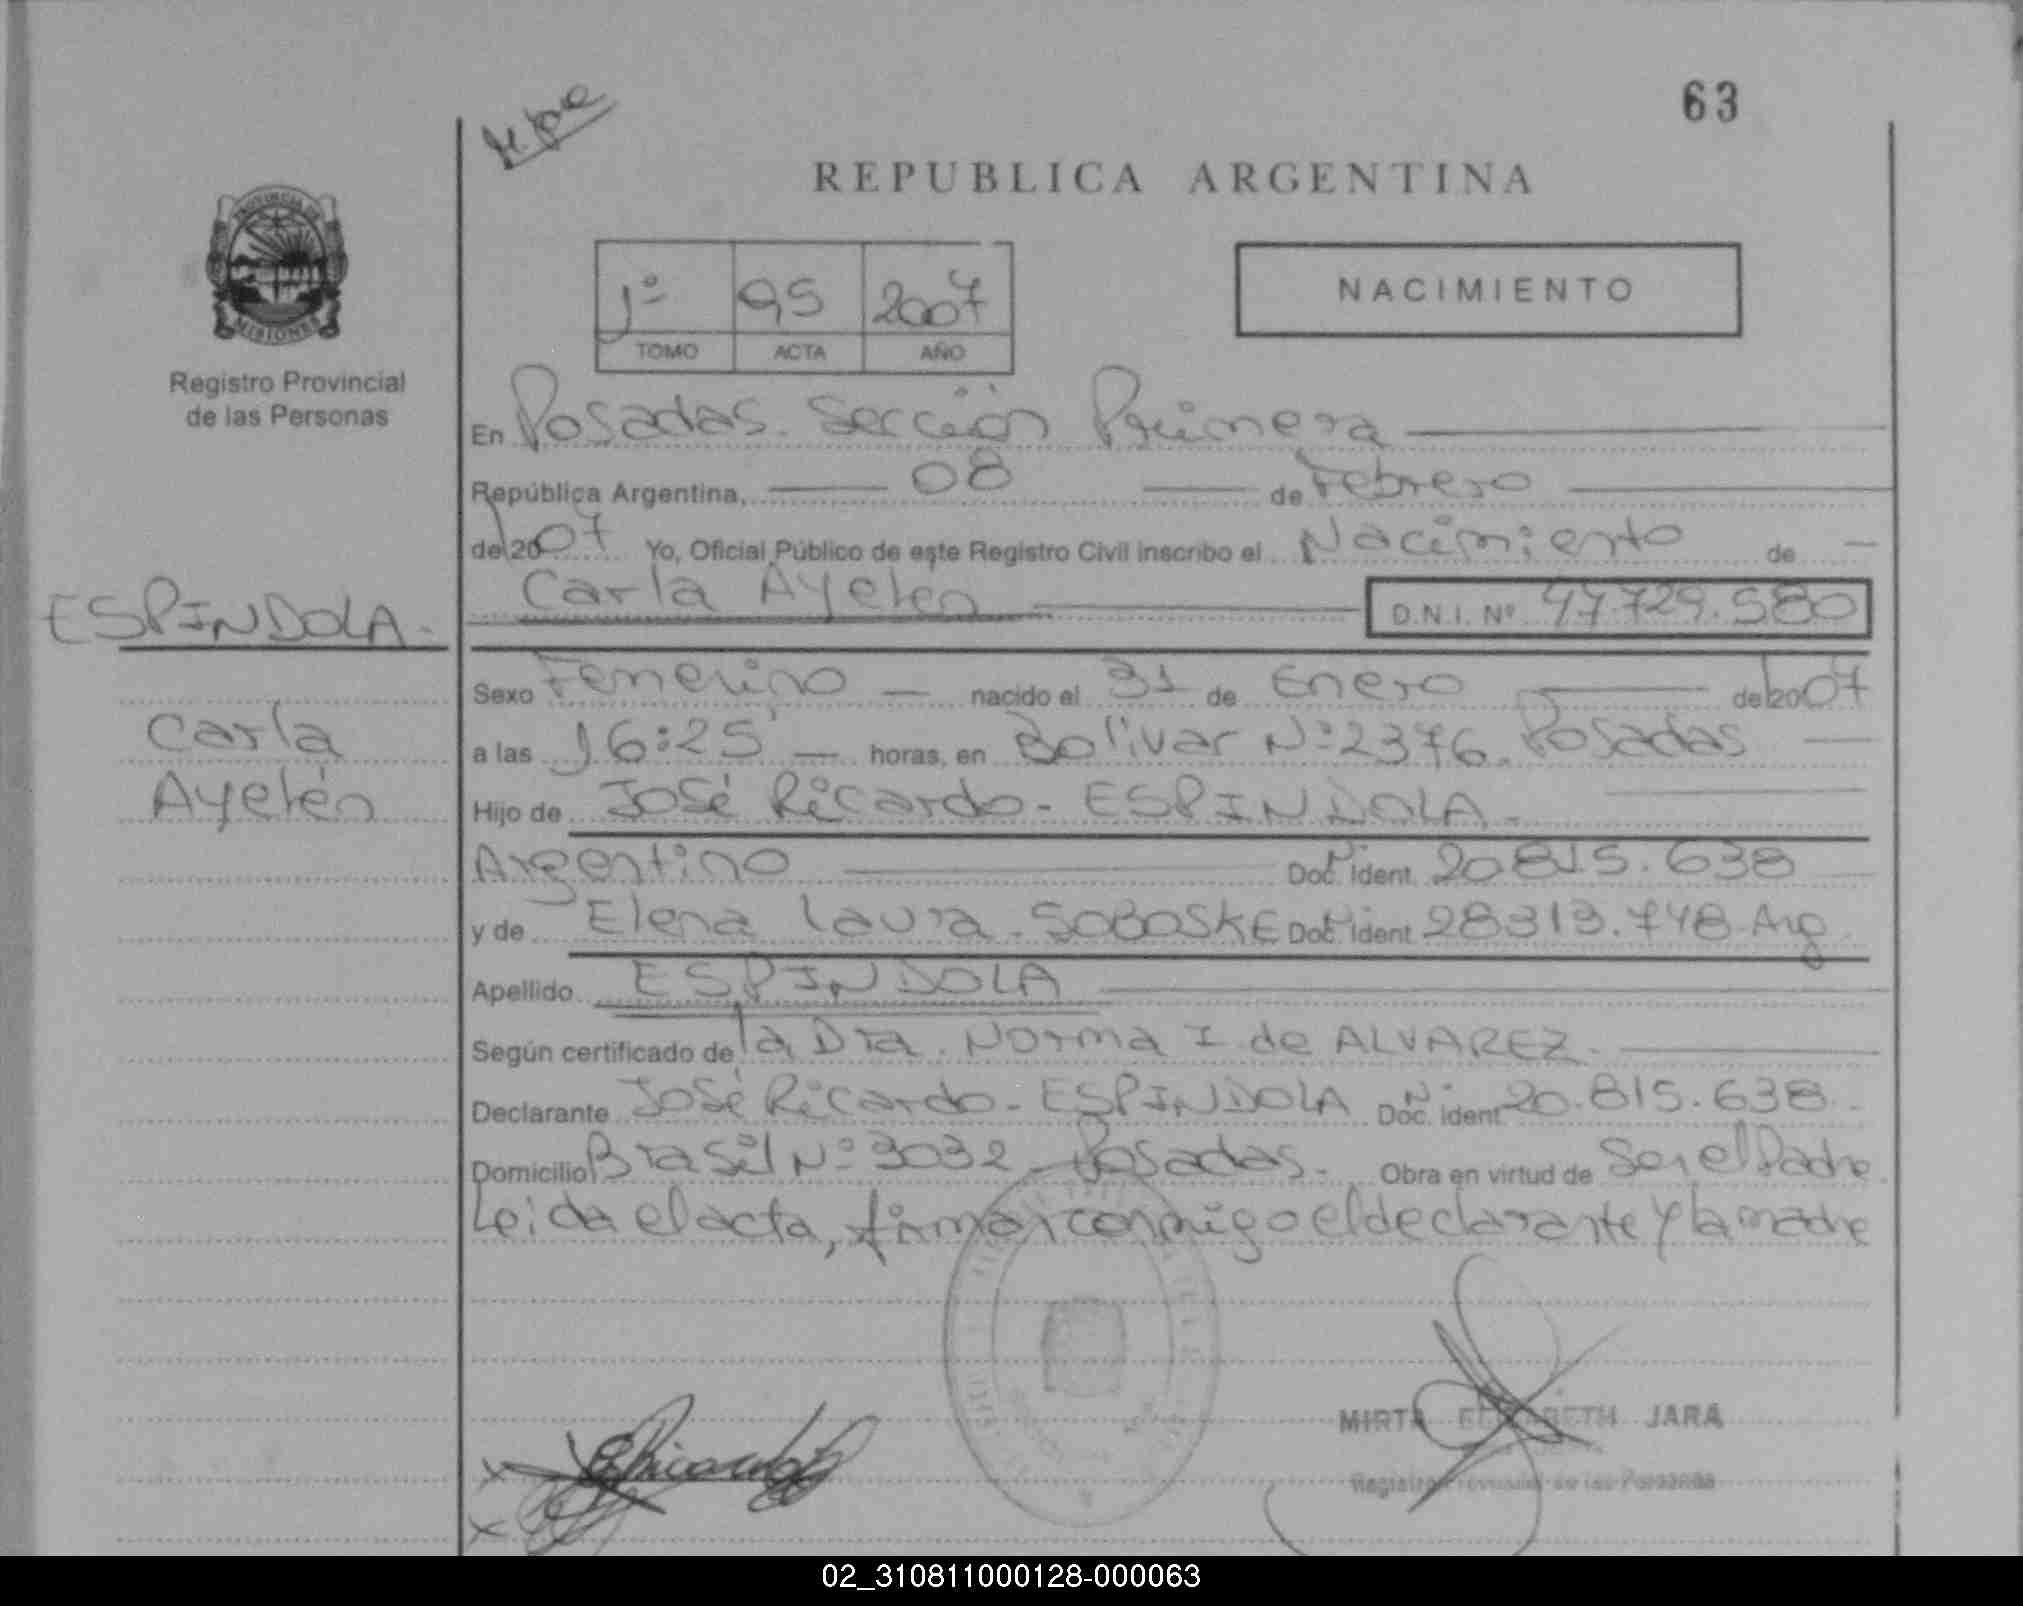 63
REPUBLICA ARGENTINA
PROVINCIA DE
MISIONES
Registro Provincial
de las Personas
1º 95 2007
TOMO ACTA AÑO
NACIMIENTO
En Posadas. Sección Primera
República Argentina, 08 de Febrero
de 2007 Yo, Oficial Público de este Registro Civil inscribo el Nacimiento de
Carla Ayelén D.N.I. Nº 47.729.580
ESPINDOLA.
Carla
Ayelén
Sexo Femenino nacido el 31 de Enero de 2007
a las 16:25 horas, en Bolivar Nº 2376. Posadas
Hijo de José Ricardo - ESPINDOLA.
Argentino Doc. Ident. 20.815.638
y de Elena Laura - SOBOSKE Doc. Ident. 28313.748 Arg.
Apellido ESPINDOLA
Según certificado de la Dra. Norma I. de ALVAREZ.
Declarante José Ricardo - ESPINDOLA Doc. Ident. 20.815.638.
Domicilio Brasil Nº 3032 - Posadas. Obra en virtud de Ser el Padre
Leida el acta, firman conmigo el declarante y la madre
MIRTA ELIZABETH JARA
Registro Provincial de las Personas
02_310811000128-000063